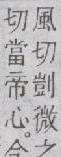 風切剴微之
切當帝心。令